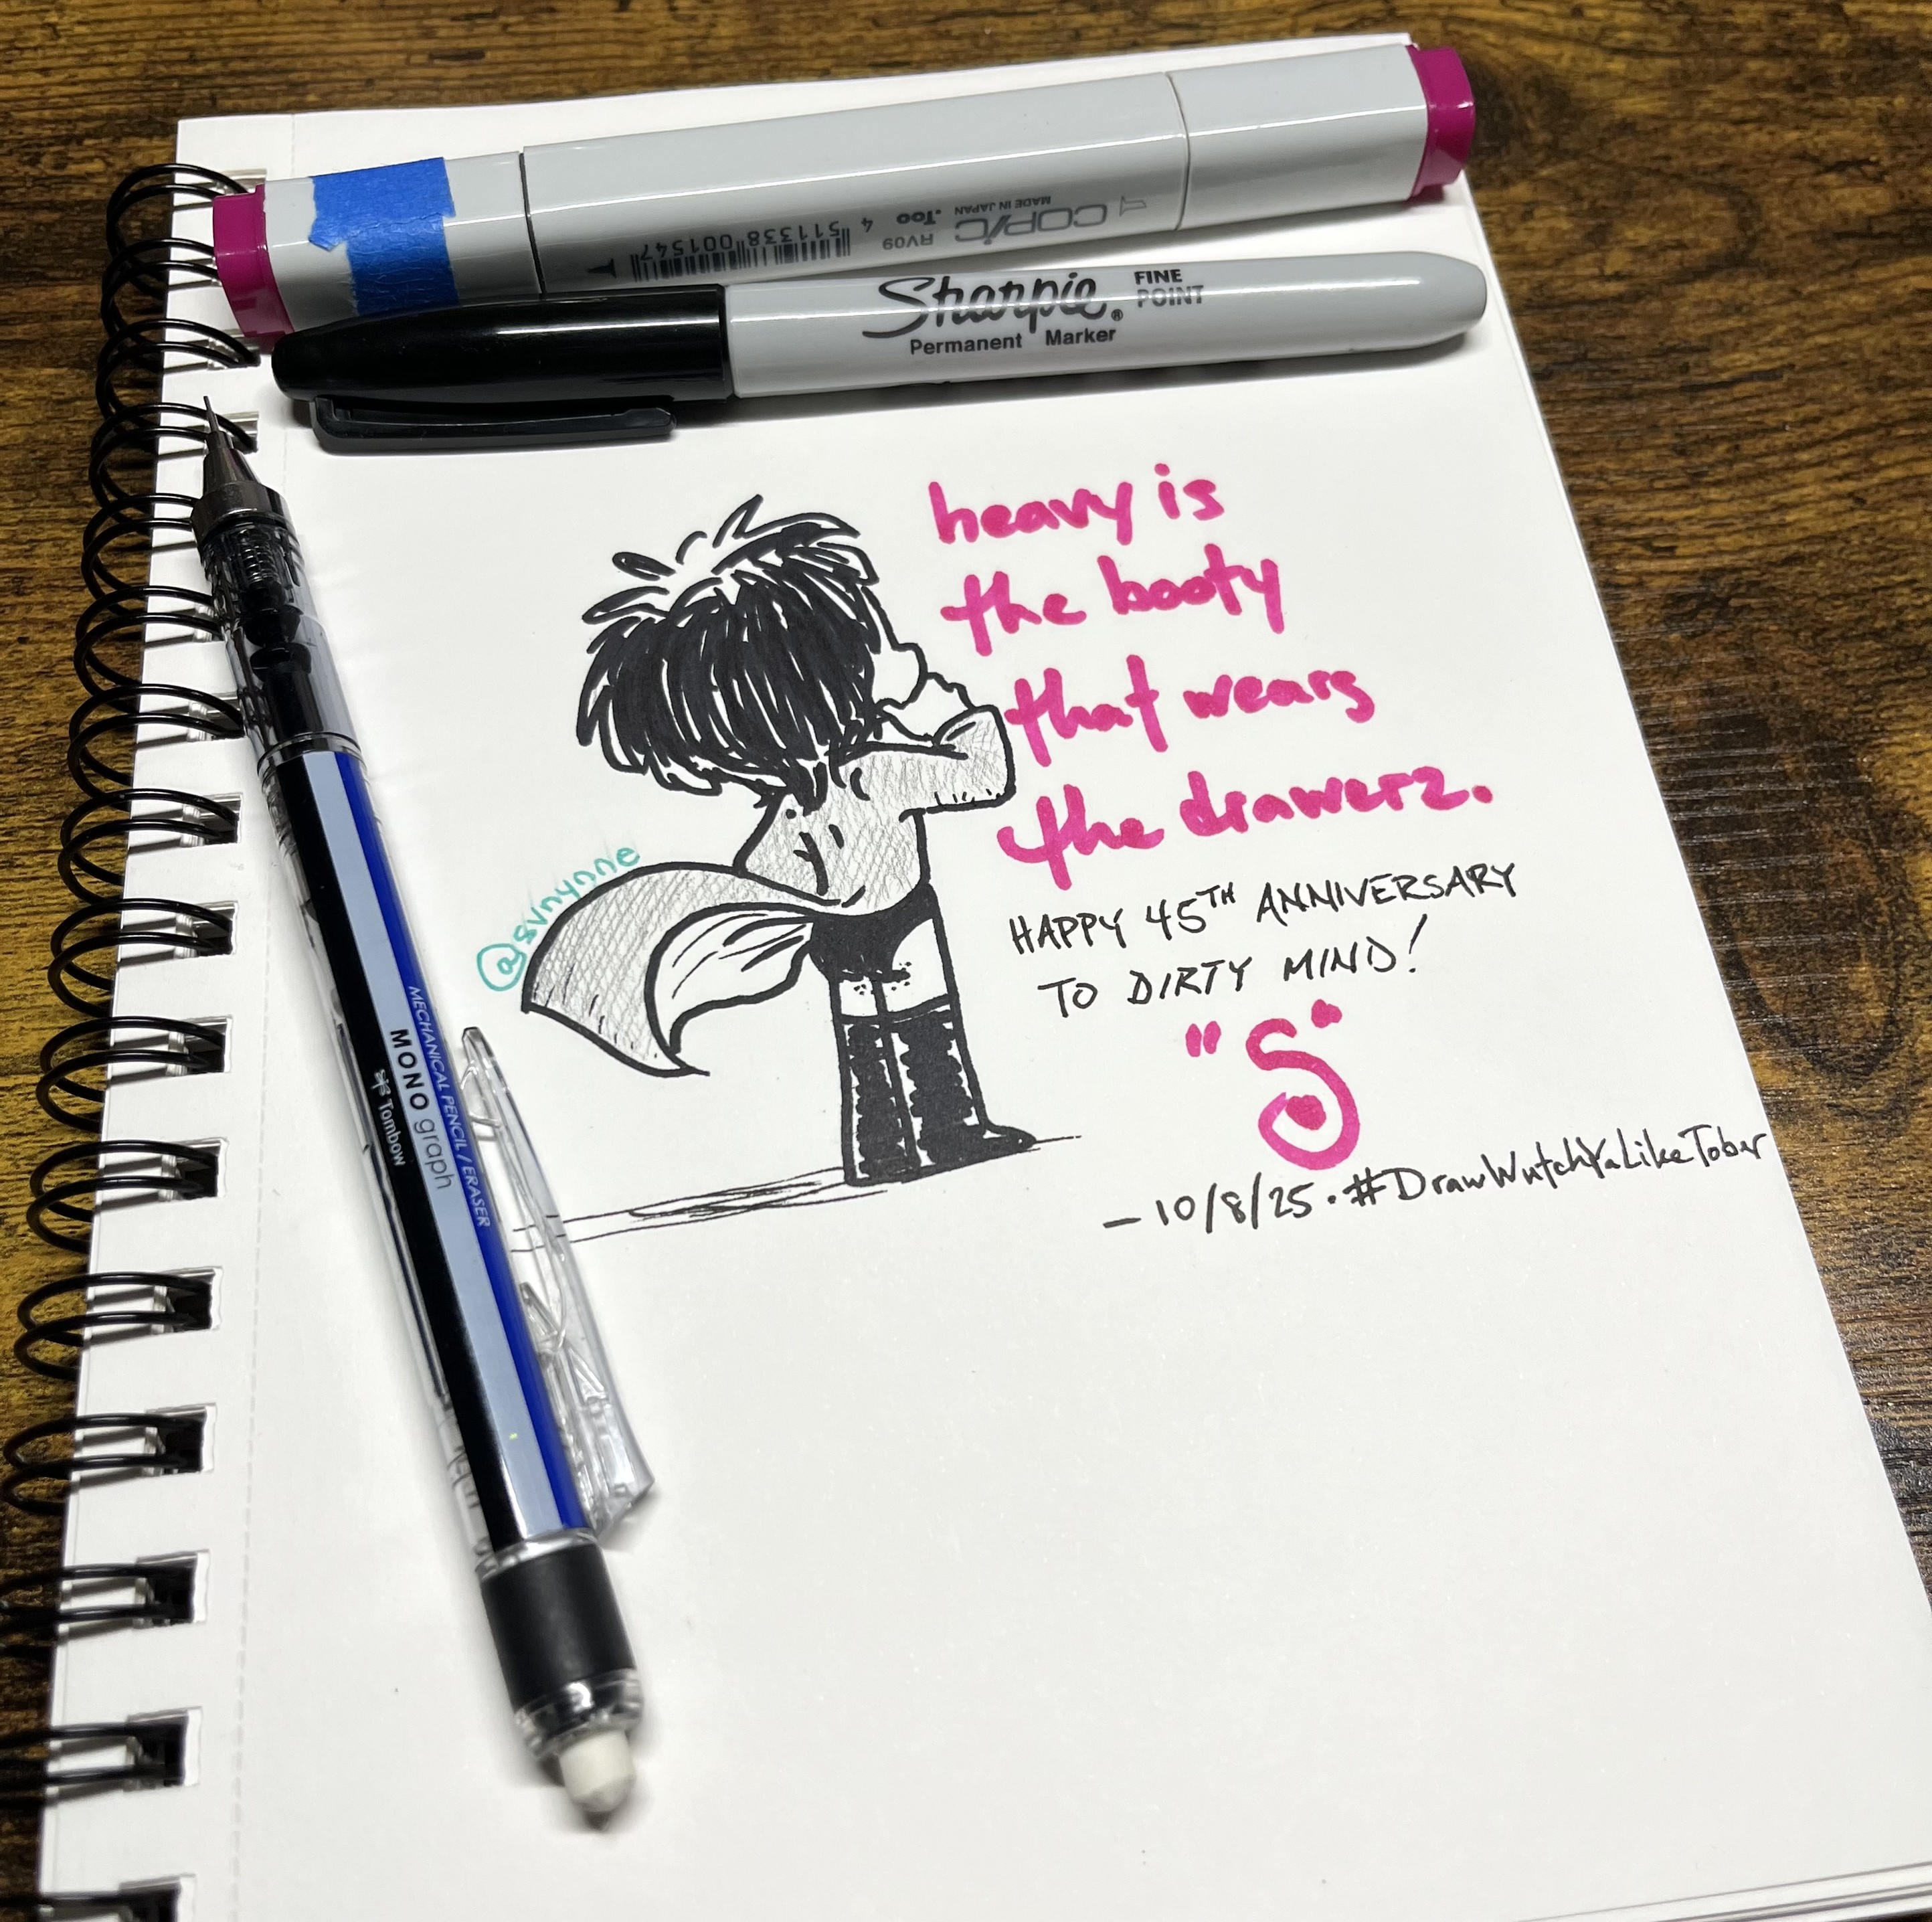 COPIC
MADE IN JAPAN
.Too
RV09
4 511338 001547
T
Sharpie® FINE POINT
Permanent Marker
heavy is
the booty
that wears
the drawerz.
HAPPY 45TH ANNIVERSARY
TO DIRTY MIND!
"S"
— 10/8/25 · #DrawWutchYaLikeTober
@svnynne
MECHANICAL PENCIL / ERASER
MONO graph
Tombow